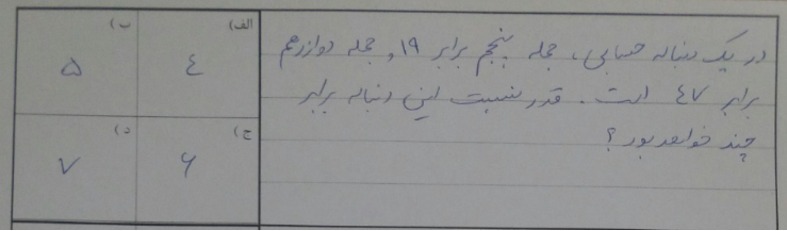 در یک دنباله حسابی، جمله پنجم برابر ۱۹ و جمله دوازدهم
برابر ٤٧ است. قدر نسبت این دنباله برابر
چند خواهد بود؟
الف) ٤
ب) ۵
ج) ۶
د) ۷